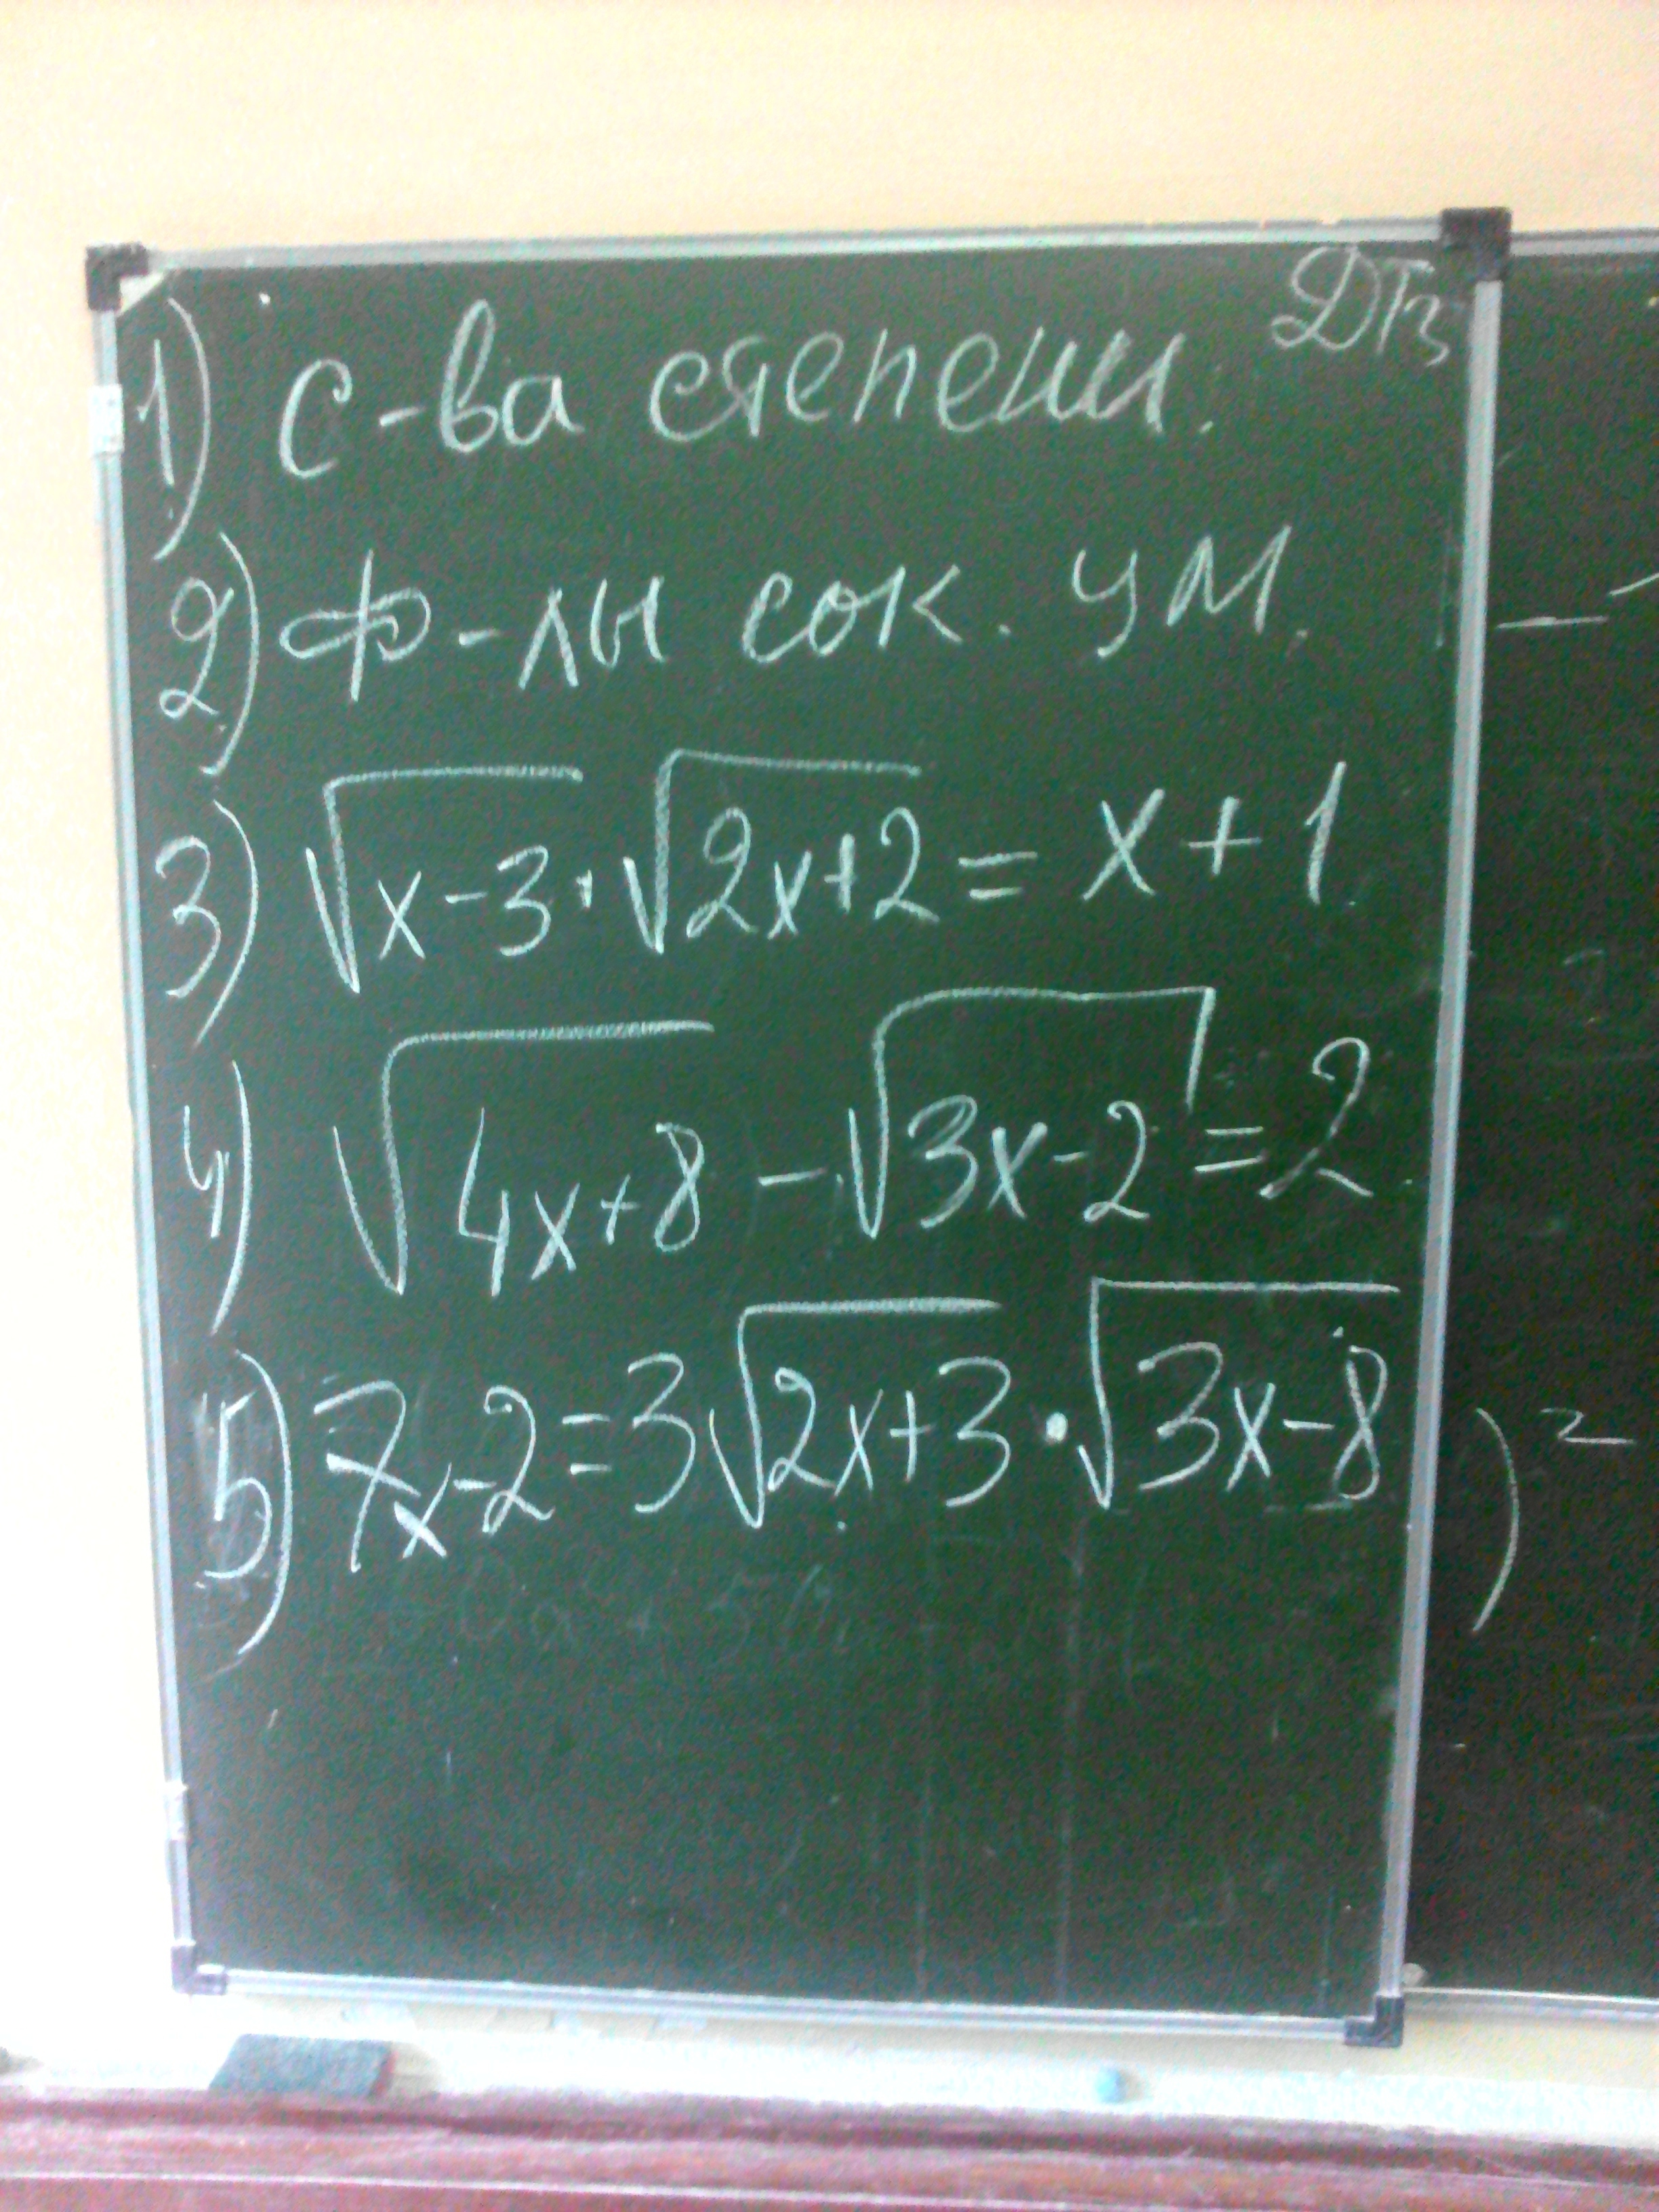 Д/з
1) С-ва степени.
2) Ф-лы сок. ум.
3) √x-3 · √2x+2 = x+1
4) √4x+8 - √3x-2 = 2
5) 7x-2=3√2x+3 · √3x-8
)²